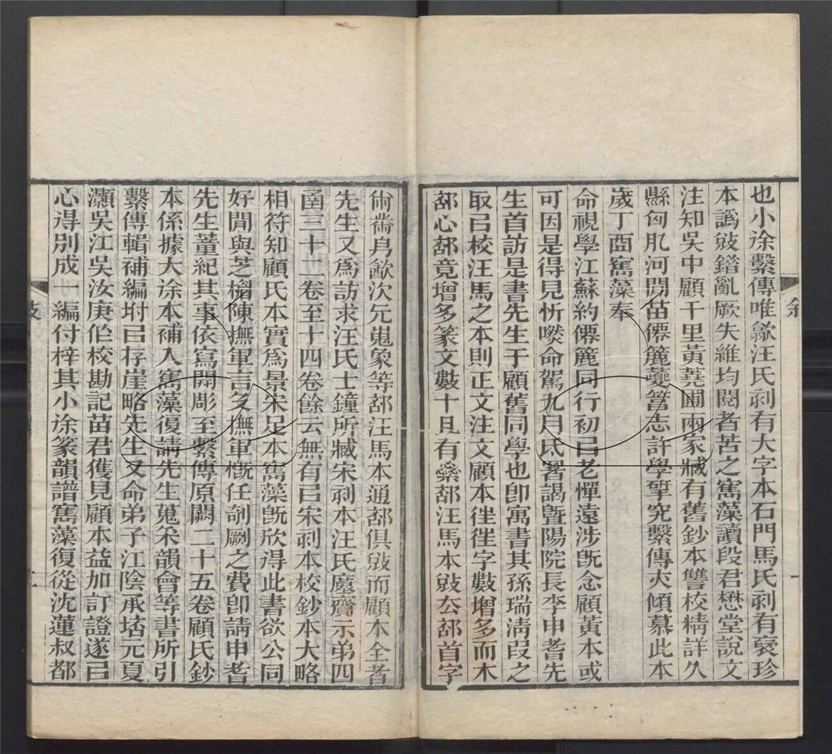 也小徐繫傳唯歙汪氏刻有大字本石門馬氏刻有袌珍
本譌敚錯亂厥失維均閱者苦之寯藻讀段君懋堂說文
注知吳中顧千里黃蕘圃兩家臧有舊鈔本讐校精詳久
縣匈肊河閒苗僊簏夔篤志許學揅究繫傳夾傾慕此本
歲丁酉寯藻奉
命視學江蘇約僊簏同行初㠯老憚遠涉旣念顧黃本或
可因是得見忻嘫命駕九月氐署謁曁陽院長李申耆先
生首訪是書先生于顧舊同學也卽寓書其孫瑞淸叚之
取㠯校汪馬之本則正文注文顧本徃徃字數增多而木
部心部竟增多篆文數十且有㯱部汪馬本敚去部首字
㡀黹㐆㱃次旡嵬象等部汪馬本通部俱敚而顧本全者
先生又爲訪求汪氏士鐘所臧宋刻本汪氏靡齋示弟四
函三十二卷至十四卷餘云無有㠯宋刻本校鈔本大略
相符知顧氏本實爲景宋足本寯藻旣欣得此書欲公同
好閒與芝楣陳撫軍言之撫軍慨任剞劂之費卽請申耆
先生董紀其事依寫開彫至繫傳原闕二十五卷顧氏鈔
本係據大徐本補入寯藻復請先生蒐采韻會等書所引
繫傳輯補編坿㠯存崖略先生又命弟子江陰承培元夏
灝吳江吳汝庚作校勘記苗君獲見顧本益加訂證遂㠯
心得別成一編付梓其小徐篆韻譜寯藻復從沈蓮叔都